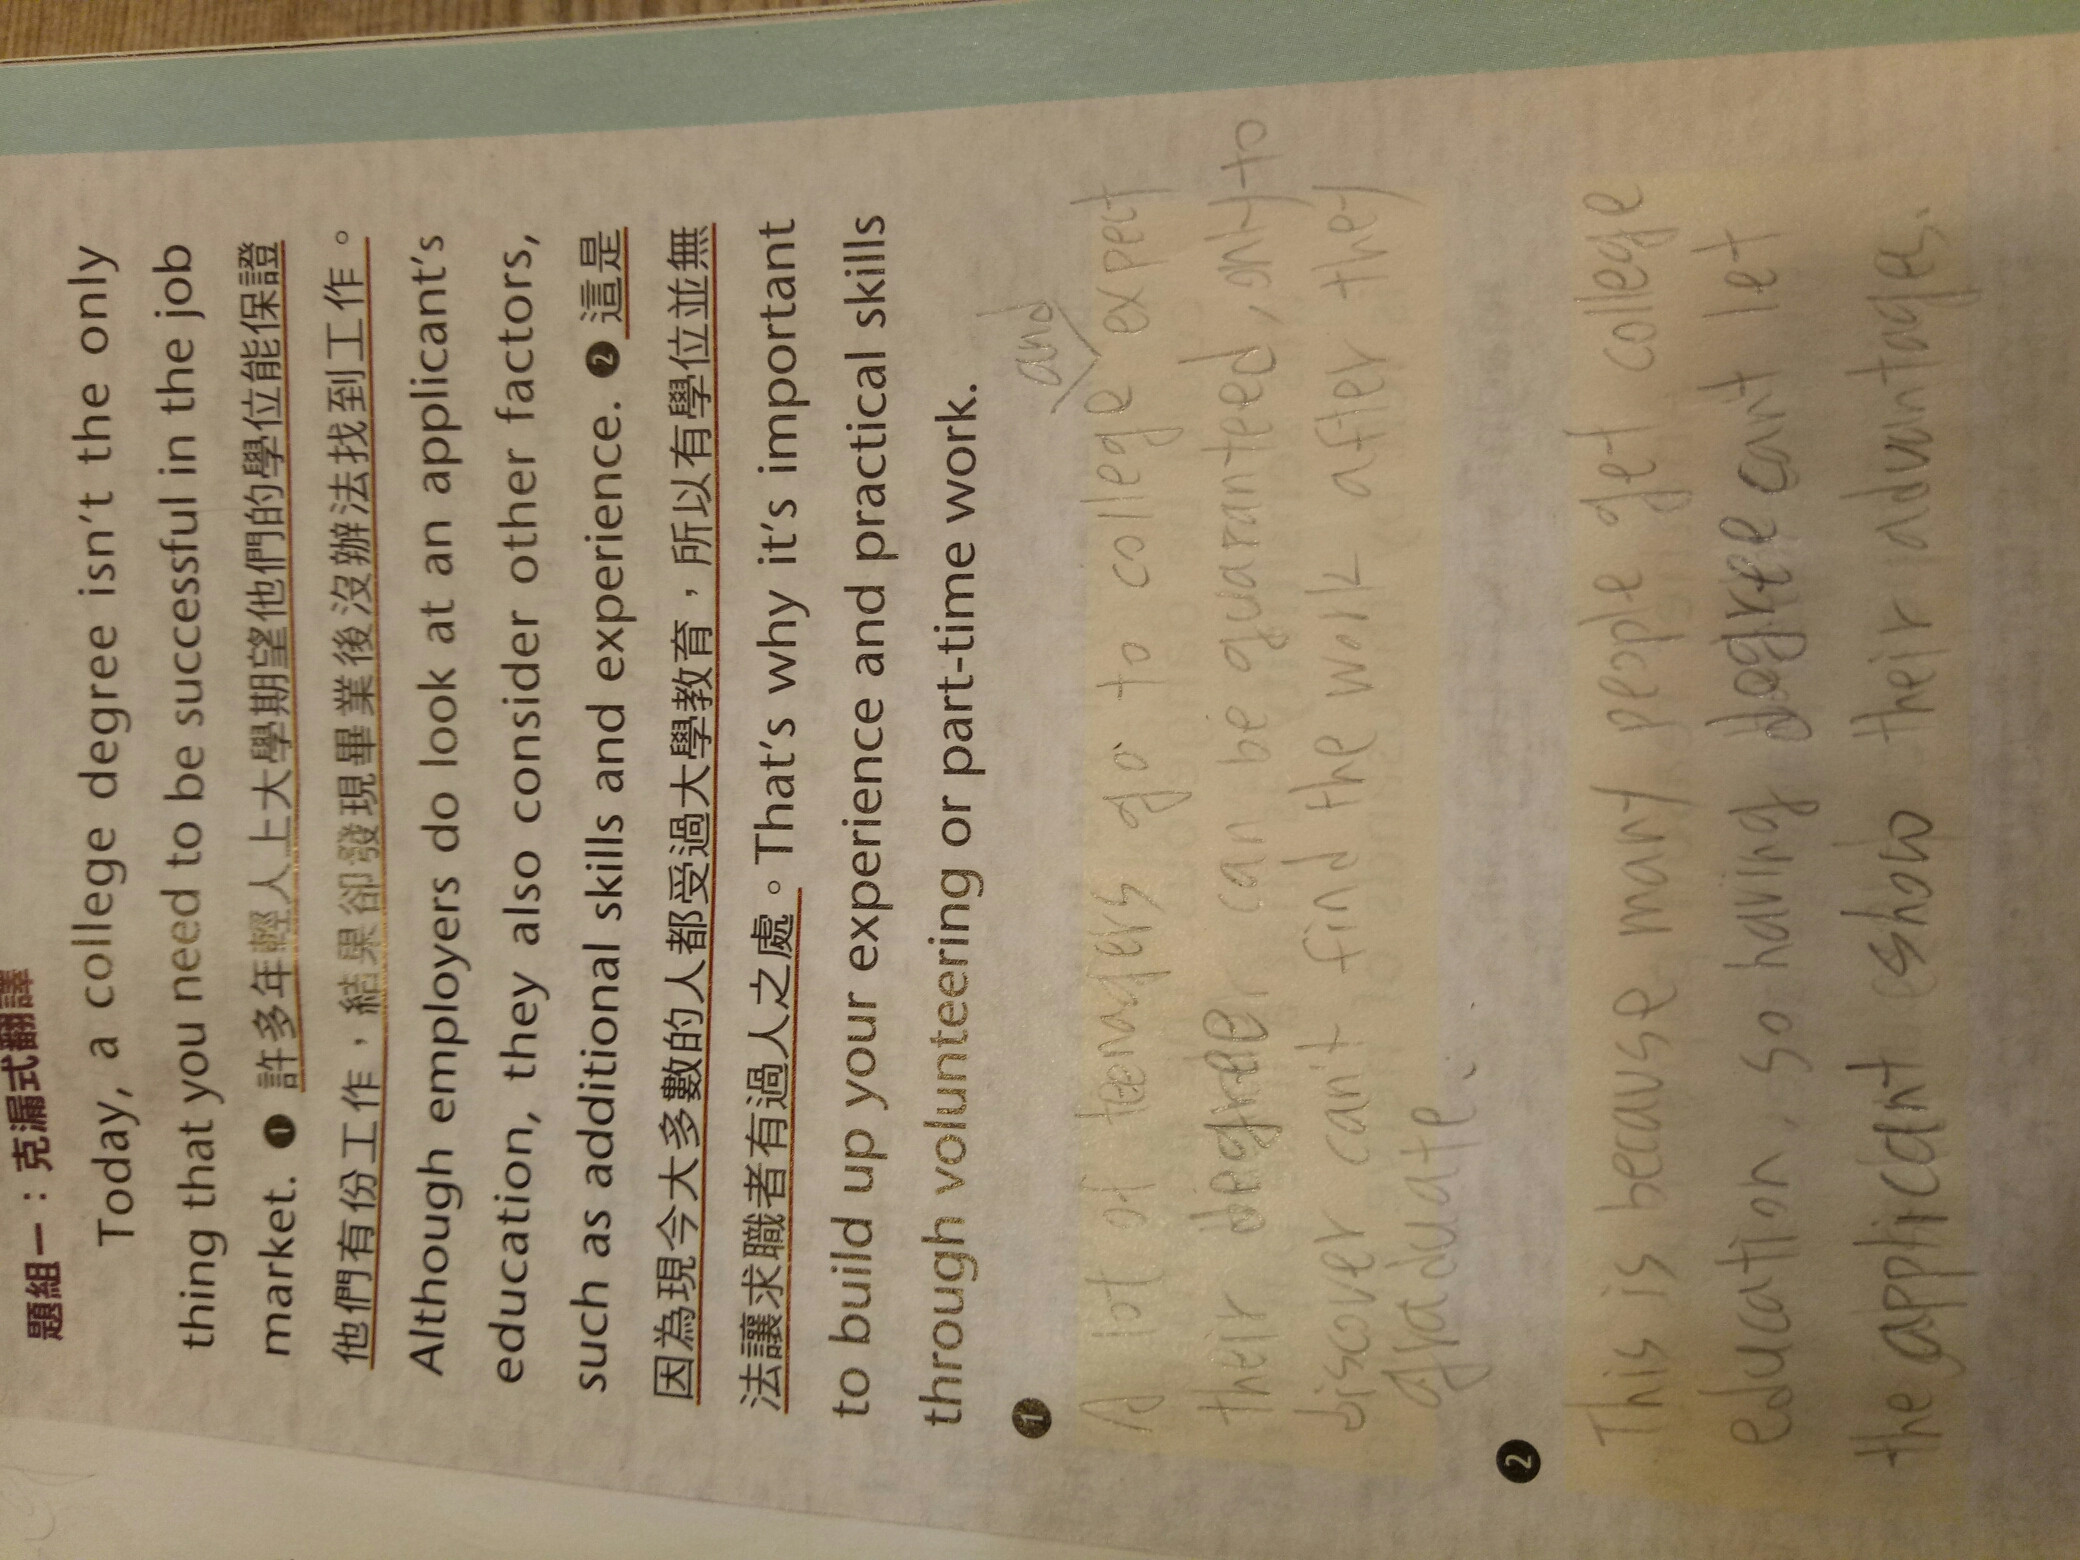 題組一：克漏式翻譯
Today, a college degree isn't the only
thing that you need to be successful in the job
market. ❶ 許多年輕人上大學期望他們的學位能保證
他們有份工作，結果卻發現畢業後沒辦法找到工作。
Although employers do look at an applicant's
education, they also consider other factors,
such as additional skills and experience. ❷ 這是
因為現今大多數的人都受過大學教育，所以有學位並無
法讓求職者有過人之處。That's why it's important
to build up your experience and practical skills
through volunteering or part-time work.
❶
and
A lot of teenagers go to college expect
their degree can be guaranteed, only to
discover can't find the work after they
graduate.
❷
This is because many people get college
education, so having degree can't let
the applicant eshow their advantages.